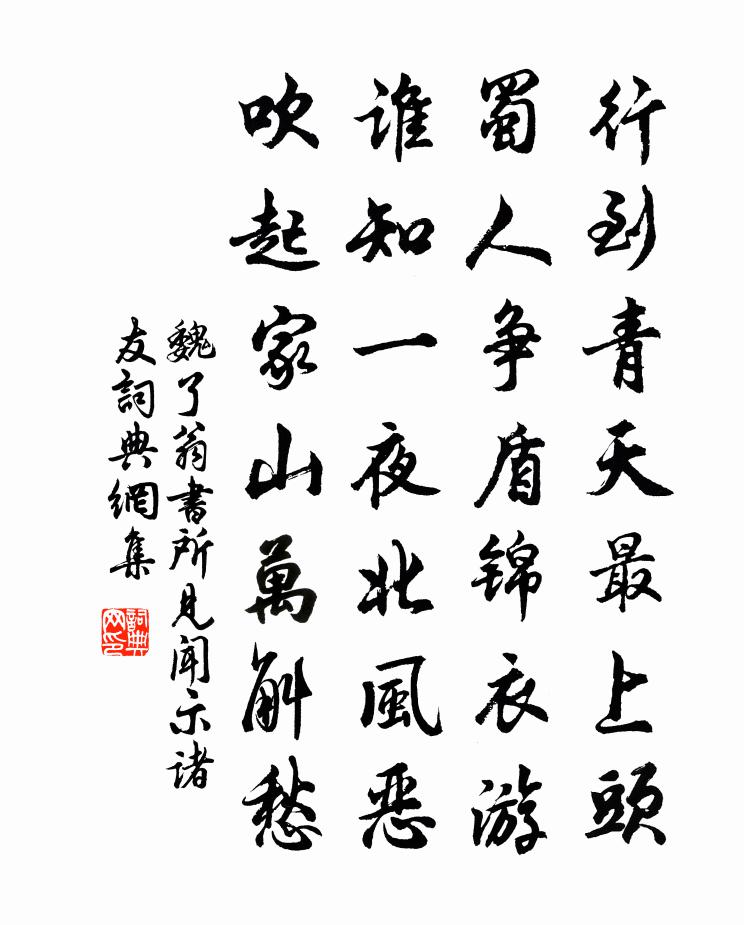 行到青天最上頭
蜀人争盾锦衣游
誰知一夜北風恶
吹起家山萬斛愁
魏了翁書所見聞示諸
友詞典網集
詞典
网印